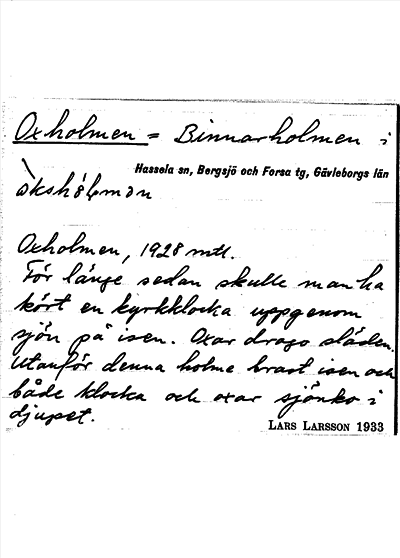 Oxholmen = Binnarholmen i
Hassela sn, Bergsjö och Forsa tg, Gävleborgs län
Oxholmen, 1928 mtl.
För länge sedan skulle man ha
kört en kyrkklocka uppgenom
sjön på isen. Oxar drogo släden.
Utanför denna holme brast isen och
både klocka och oxar sjönko i
djupet.
LARS LARSSON 1933